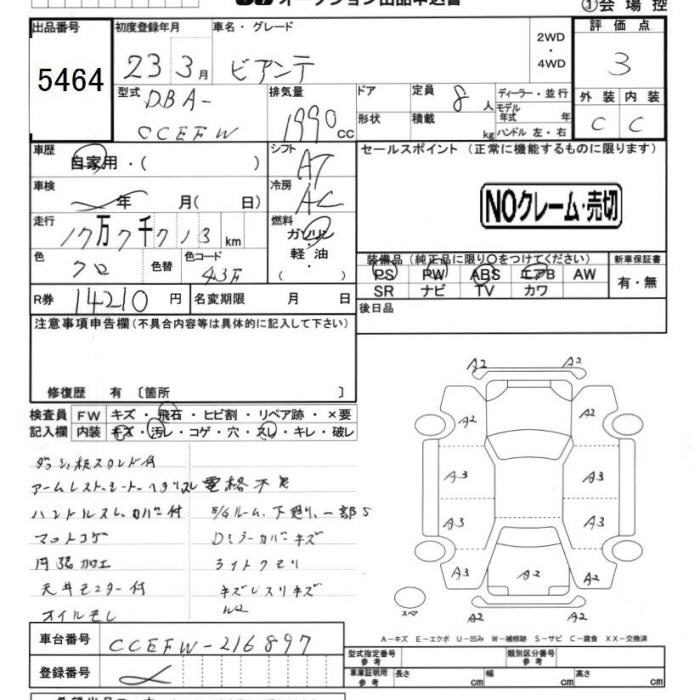 オークション出品申込書 ①会場控
出品番号 初度登録年月 車名・グレード 2WD・4WD 評価点
5464 23 3月 ビアンテ 3
型式 DBA- CCEFW 排気量 1990cc ドア 形状 定員 8人 積載 kg ディーラー・並行 モデル年式 年 ハンドル 左・右 外装 内装
C C
車歴 自家用・( ) シフト AT セールスポイント (正常に機能するものに限ります)
車検 年 月( 日) 冷房 AC
NOクレーム・売切
走行 17万7千713km 燃料 ガソリン・軽油・( )
色 クロ 色替 色コード 43万
装備品(純正品に限り○をつけてください) 新車保証書
PS PW ABS エアB AW 有・無
SR ナビ TV カワ
R券 14210円 名変期限 月 日 後日品
注意事項申告欄(不具合内容等は具体的に記入して下さい)
修復歴 有 〔箇所 〕
検査員記入欄 FW キズ・飛石・ヒビ割・リペア跡・×要
内装 キズ・汚レ・コゲ・穴・スレ・キレ・破レ
電格不良
ハンドルスレ、カバー付
マットコゲ Dミラーカバーキズ
内張加工 ライトクモリ
天井モニター付
オイルモレ
A2 A2 A2
A2 A2
A3 A3
A3 A3
A3 A2 A2
A2 A2
スペア
A-キズ E-エクボ U-凹み W-補修跡 S-サビ C-腐食 XX-交換済
車台番号 CCEFW-216897
型式指定番号 参考 類別区分番号 参考
登録番号 車庫証明用 参考 長さ cm 幅 cm 高さ cm